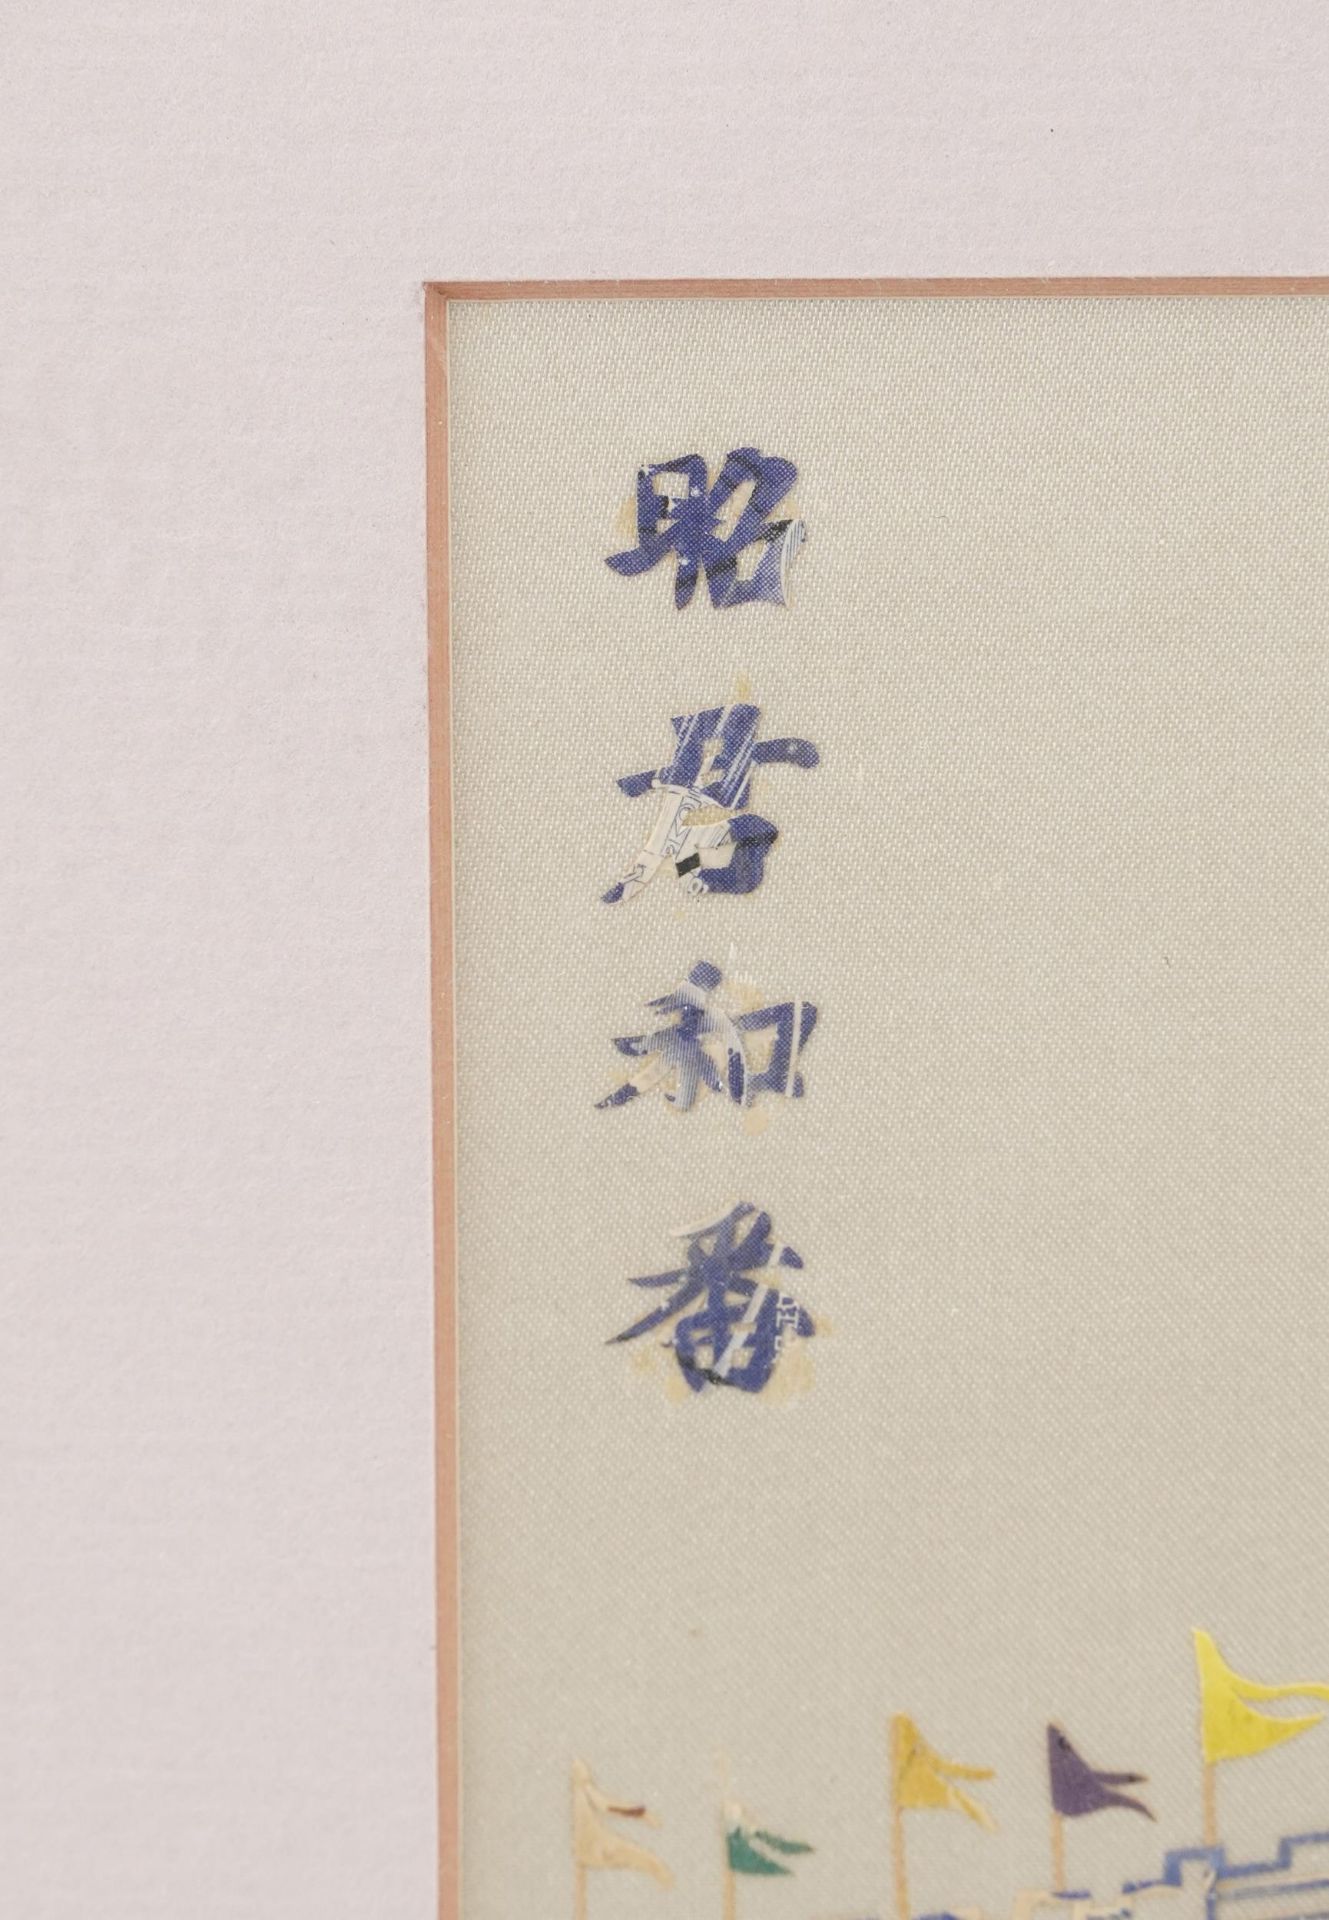 昭君和番